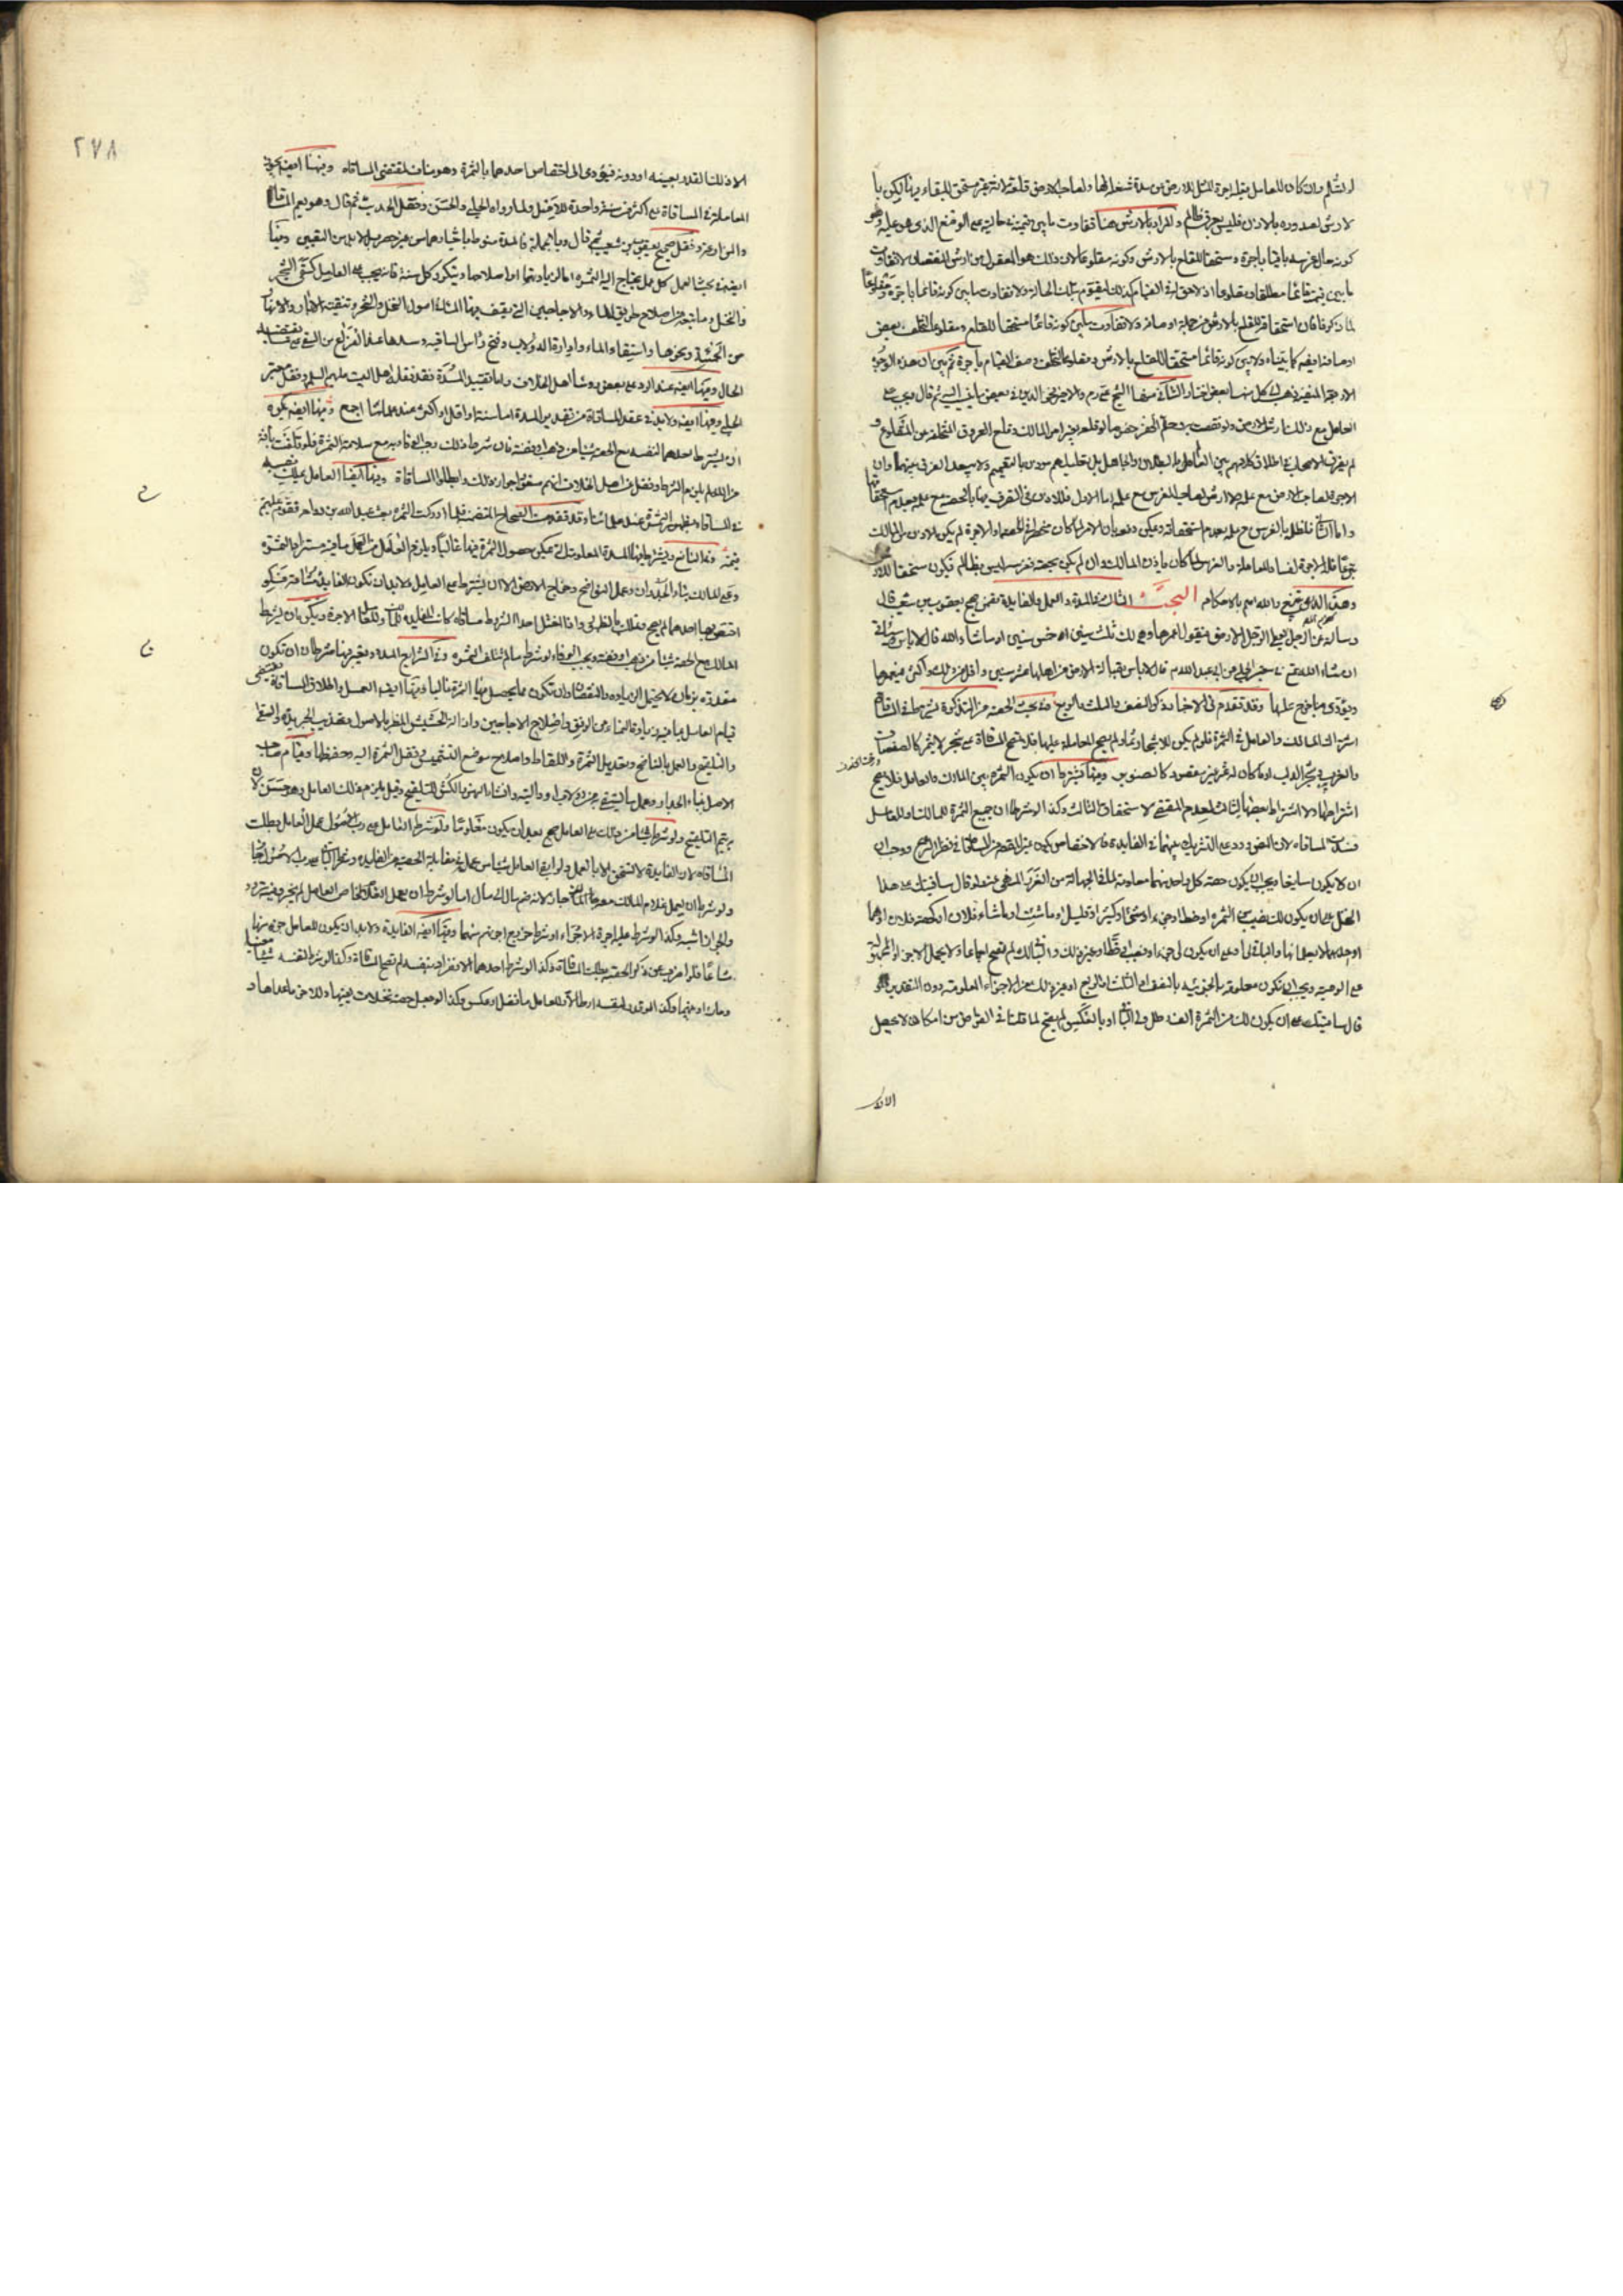 وان كان للعامل بقلع اجرة المثل للارض عن مدة شغله لها ولصاحب الارض قلعه لانه غير مستحق للبقاء فيها لكن با
لارش لصدوره بالاذن فليس بعرق ظالم والمراد بالارش هنا تفاوت ما بين قيمته في حاليه على الوضع الذي هو عليه وهو
كونه حال غرسه باقيا باجرة ومستحقا للقلع بالارش وكونه مقلوعا لان ذلك هو المعقول من ارش النقصان لا تفاوت
ما بين قيمته قائما مطلقا ومقلوعا اذ لا حق له في القيام كذلك ليقوم بتلك الحالة ولا تفاوت ما بين كونه قائما باجرة ومقلوعا
لما ذكر فان استحقاقه للقلع بالارش من جملة اوصافه ولا تفاوت ما بين كونه قائما مستحقا للقلع ومقلوعا لتخلف بعض
اوصافه ايضه كما بيناه ولا بين كونه قائما مستحقا للقلع بالارش ومقلوعا لتخلف وصف القيام باجرة
العامل مع ذلك ارش الارض لو نقصت به وطم الحفر خصوصا لو قلعه بغير امر المالك وقلع العروق المتخلفة عن المقلوع و
لم يفرق الاصحاب في اطلاق كلامهم بين العامل بالبطلان والجاهل بل تعليلهم مؤذن بالتعميم ولا يبعد الفرق بينهما وان
الاجرة لصاحب الارض مع علمه ولا ارش لصاحب الغرس مع علمه اما الاول فللاذن في التصرف فيها بالحصة مع علمه بعدم استحقاقها
واما الثاني فلظلمه بالغرس مع علمه بعدم استحقاقه ويمكن دفعه بان الامر لما كان منحصرا في الحصة او الاجرة لم يكن الاذن من المالك
تبرعا فله الاجرة لفساد المعاملة والغرس لما كان باذن المالك وان لم يكن بحصته فغرسه ليس بظالم فيكون مستحقا للارش
وهذا الذي قوي والله اعلم بالاحكام البحث الثالث في المدة والعمل والفايدة تضمن صحيح يعقوب بن شعيب قال
وسالته عن الرجل يعطي الرجل الارض فيقول اعمرها وهي لك ثلث سنين او خمس سنين او ما شاء الله قال لا باس
ان شاء الله تع خبر الحلبي عن ابي عبد الله ع قال لا باس بقبالة الارض من اهلها عشر سنين واقل من ذلك واكثر فيعمرها
ويؤدي ما خرج عليها وقد تقدم في الاخبار ذكر النصف والثلث والربع في بحث الحصة من التذكرة يشترط في المساقاة
اشتراك المالك والعامل في الثمرة فلو لم يكن للاشجار ثمار لم يصح المعاملة عليها فلا تصح المساقاة على شجر لا يثمر كالصفصاف
والغرب وشجر الدلب او ما كان له ثمر غير مقصود كالصنوبر ومنها يشترط ان يكون الثمرة بين المالك والعامل فلا يصح
اشتراطها ولا اشتراط بعضها لثالث لعدم المقتضي لاستحقاق الثالث وكذا لو شرطا ان جميع الثمرة للمالك او للعامل
فسدت المساقاة لان النص ورد على التشريك بينهما في الفايدة فالاختصاص يكون على النقيض من المساقاة في نظر الشرع ووجب ان
ان لا يكون سايغا ويجب ان يكون حصة كل واحد منهما معلومة لما في الجهالة من الغرر المنهي عنه فلو قال ساقيتك على هذا
النخل على ان يكون لك نصيب من الثمرة او حظ او جزء او شيء او كثير او قليل او ما شئت او ما شاء فلان او كحصة فلان او
او جعل لا يعلمانها والباقي لي او على ان يكون لي جزء او نصيب او حظ او غير ذلك والباقي لك لم تصح اجماعا ولا يحمل الجزء
على الوصية ويجب ان تكون معلومة بالجزئية بالنصف او الثلث او الربع او غير ذلك من الاجزاء المعلومة دون التقدير فلو
قال ساقيتك على ان يكون لك من الثمرة الف رطل ولي الباقي او بالعكس لم يصح لما قلنا في القراض من امكان ان لا يحصل
الا ذلك
٢٧٨
الا ذلك القدر بعينه او دونه فيؤدي الى اختصاص احدهما بالثمرة وهو مناف لمقتضى المساقاة ومنها ايضه يجوز
المعاملة في المساقاة على اكثر من سنة واحدة للاصل ولما رواه الحلبي والحسن ونقل الحديث ثم قال وهو يعم المساقاة
والمزارعة ونقل صحيح يعقوب بن شعيب ثم قال وبالجملة فالمدة منوطة باختيارهما من غير حصر بل لا بد من التعيين ومنها
ايضه في بحث العمل كل عمل يحتاج اليه الثمرة اما لزيادتها او اصلاحها ويتكرر كل سنة فانه يجب على العامل كسقي الشجر
والنخل وما يتبعه من اصلاح طريق الماء والاجاجين التي يقف فيها الماء في اصول النخل والشجر وتنقية الابار والانهار
من الحمأة ونحوها واستقاء الماء وادارة الدولاب وفتح رأس الساقية وسدها عند الفراغ من السقي على ما يقتضيه
الحال ومنها ايضه عند الرد على بعض روسا اهل الخلاف واما تقييد المدة فقد نقله اهل البيت عليهم السلم ونقل خبر
الحلبي ومنها ايضه ولا بد في عقد المساقاة من تقدير المدة اما سنة او اقل او اكثر عند علمائنا اجمع ومنها ايضه يكره
ان يشترط احدهما لنفسه مع الحصة شيئا من ذهب او فضة فان شرط ذلك وجب الوفاء به مع سلامة الثمرة فلو تلفت بآفة
من الله لم يلزم الشرط ونقل عن اهل الخلاف انهم منعوا جواز ذلك وابطلوا المساقاة ومنها ايضا العامل يملك نصيبه
في المساقاة بظهور الثمرة عند علمائنا وقد تقدمت الصحاح المتضمنة فلما ادركت الثمرة بعث عبد الله بن رواحة فقوم عليهم
قيمة وفي النافع ويشترط فيها المدة المعلومة التي يمكن حصول الثمرة فيها غالبا ويلزم العامل من العمل ما فيه مستزاد الثمرة
وعلى المالك بناء الجدران وعمل النواضح وخراج الارض الا ان يشترط على العامل ولا بد ان تكون الفايدة مشاعة فلو
اختص بها احدهما لم يصح وفلك بالظهور واذا اختل احد الشروط مساقاة كانت الفايدة للمالك وللعامل الاجرة ويكره ان يشترط
المالك مع الحصة شيئا من ذهب او فضة ويجب الوفاء لو شرط ما لم تتلف الثمرة وفي الشرايع المدة ويعتبر فيها شرطان ان تكون
مقدرة بزمان لا يحتمل الزيادة والنقصان وان تكون مما يحصل فيها الثمرة غالبا ومنها ايضه العمل واطلاق المساقاة يقتضي
قيام العامل بما فيه زيادة النماء من الرفق واصلاح الاجاجين وازالة الحشيش المضر بالاصول وتهذيب الجريد والسقي
والتلقيح والعمل بالناضح وتعديل الثمرة واللقاط واصلاح موضع التشميس ونقل الثمرة اليه وحفظها وقيام صاحب
الاصل ببناء الجدار وعمل ما يستقى به من دولاب او دالية وانشاء النهر والكش للتلقيح وقيل يلزم ذلك العامل وهو حسن لان به
يتم التلقيح ولو شرط شيئا من ذلك على العامل صح بعد ان يكون معلوما ولو شرط العامل على رب الاصول عمل العامل بطلت
المساقاة لان الفايدة لا تستحق الا بالعمل ولو ابقى العامل شيئا من عمله في مقابلة الحصة من الفايدة وشرط الباقي على رب الاصول جاز
ولو شرط ان يعمل غلام المالك معه جاز لانه ضم مال الى مال اما لو شرط ان يعمل الغلام لخاص العامل لم يجز وفيه تردد
والجواز اشبه وكذا لو شرط عليه اجرة الاجراء او شرط خروج اجرتهم منهما ومنها ايضه الفايدة ولا بد ان يكون للعامل جزء منها
مشاعا فلو اضرب عن ذكر الحصة بطلت المساقاة وكذا لو شرط احدهما الانفراد بالثمرة لم تصح المساقاة وكذا لو شرط لنفسه شيئا معينا
وما زاد بينهما وكذا لو قدر لنفسه ارطالا وللعامل ما فضل او عكس وكذا لو جعل حصته نخلات بعينها وللاخر ما عداها و